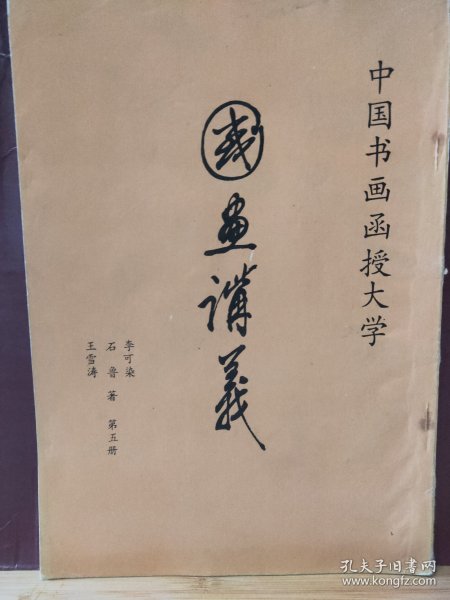 中国书画函授大学
國畫講義
李可染
石鲁 著 第五册
王雪涛
孔夫子旧书网
www.kongfz.com